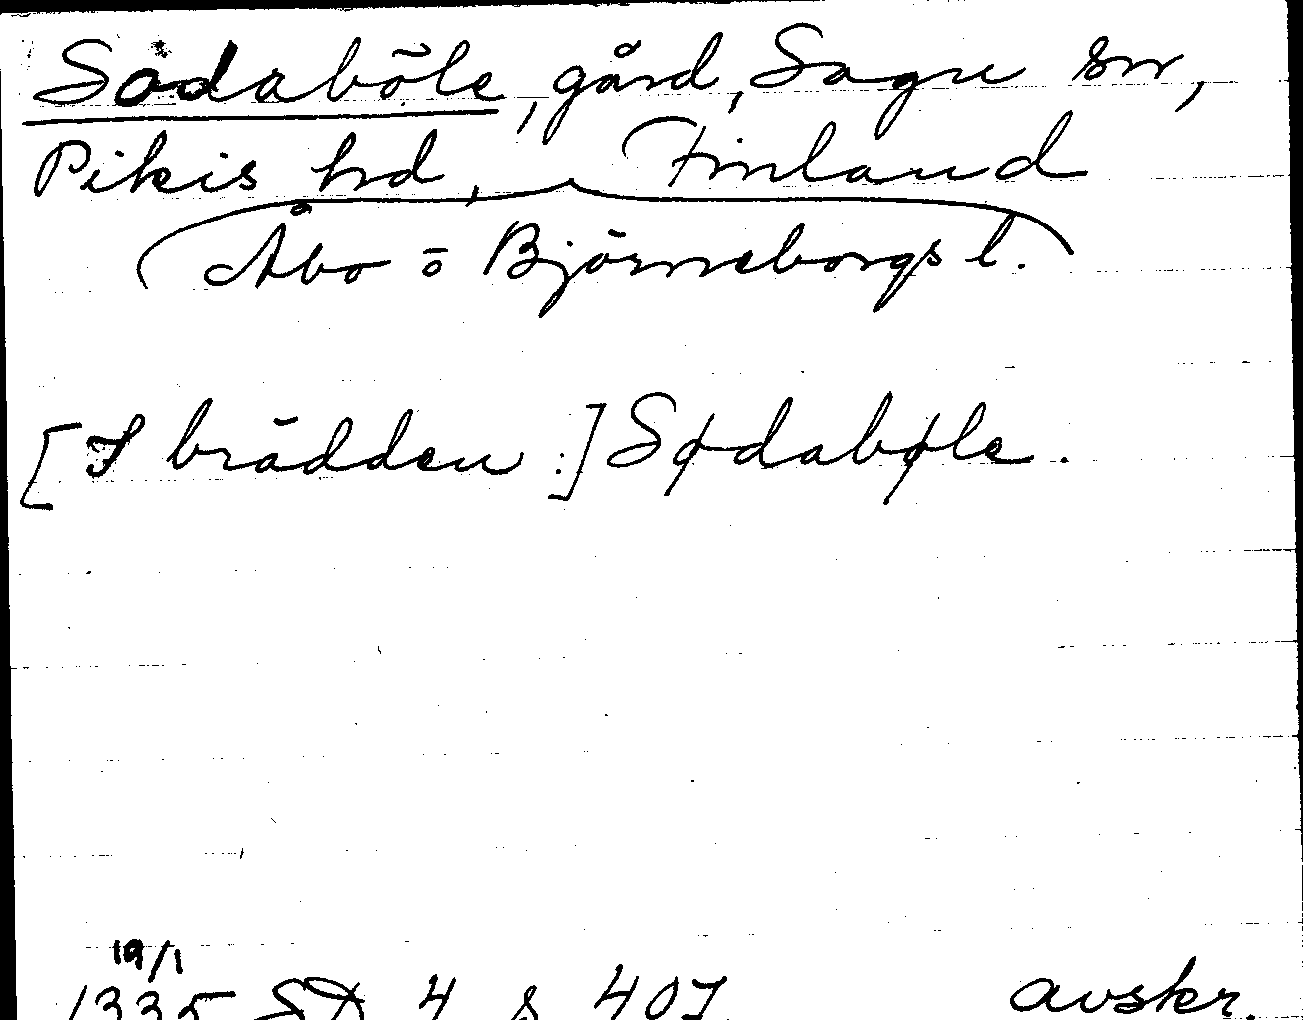 Södaböle, gård, Sagu sn,
Pikis hd, Finland
(Åbo o Björneborgs l.)
[I brädden:] Sødabøle.
19/1
1335 SD 4 s 407 avskr.